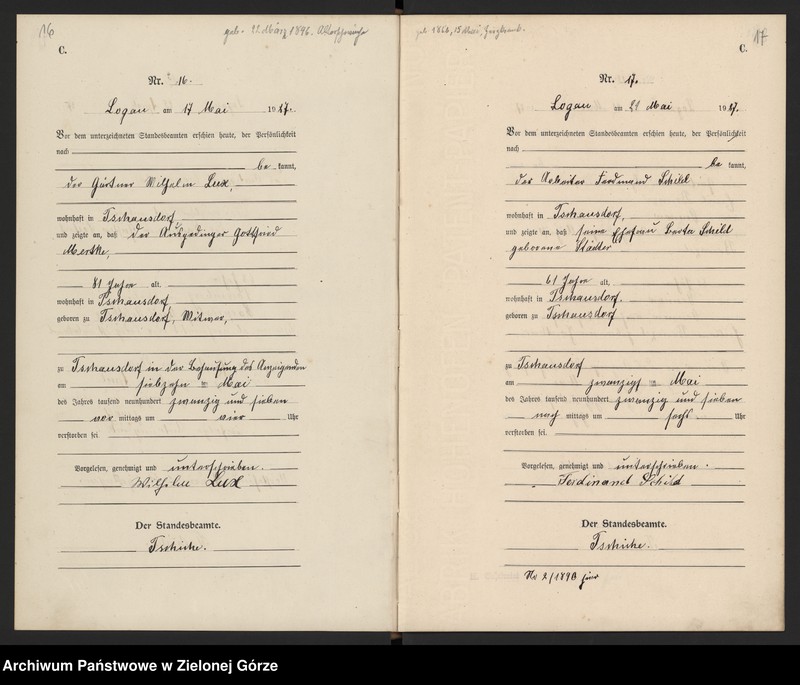 16
geb. 21. März 1846.
C.
Nr. 16.
Logau am 17 Mai 1927.
Vor dem unterzeichneten Standesbeamten erschien heute, der Persönlichkeit
nach
be kannt,
der Gärtner Wilhelm Lux,
wohnhaft in Tschausdorf,
und zeigte an, daß der Auszedinger Gottfried
Mertke,
81 Jahre alt.
wohnhaft in Tschausdorf
geboren zu Tschausdorf, Witwer,
zu Tschausdorf in der Behausung des Anzeigenden
am siebzehn ten Mai
des Jahres tausend neunhundert zwanzig und sieben
vor mittags um vier Uhr
verstorben sei
Vorgelesen, genehmigt und unterschrieben.
Wilhelm Lux
Der Standesbeamte.
Tschiche.
17
C.
Nr. 17.
Logau am 21 Mai 1927.
Vor dem unterzeichneten Standesbeamten erschien heute, der Persönlichkeit
nach
be kannt,
der Arbeiter Ferdinand Schild
wohnhaft in Tschausdorf,
und zeigte an, daß seine Ehefrau Berta Schild
geborene Städter
61 Jahre alt,
wohnhaft in Tschausdorf.
geboren zu Tschausdorf
zu Tschausdorf
am zwanzigs ten Mai
des Jahres tausend neunhundert zwanzig und sieben
nach mittags um sechs Uhr
verstorben sei.
Vorgelesen, genehmigt und unterschrieben.
Ferdinand Schild
Der Standesbeamte.
Tschiche.
No 2/1890 hier
Archiwum Państwowe w Zielonej Górze